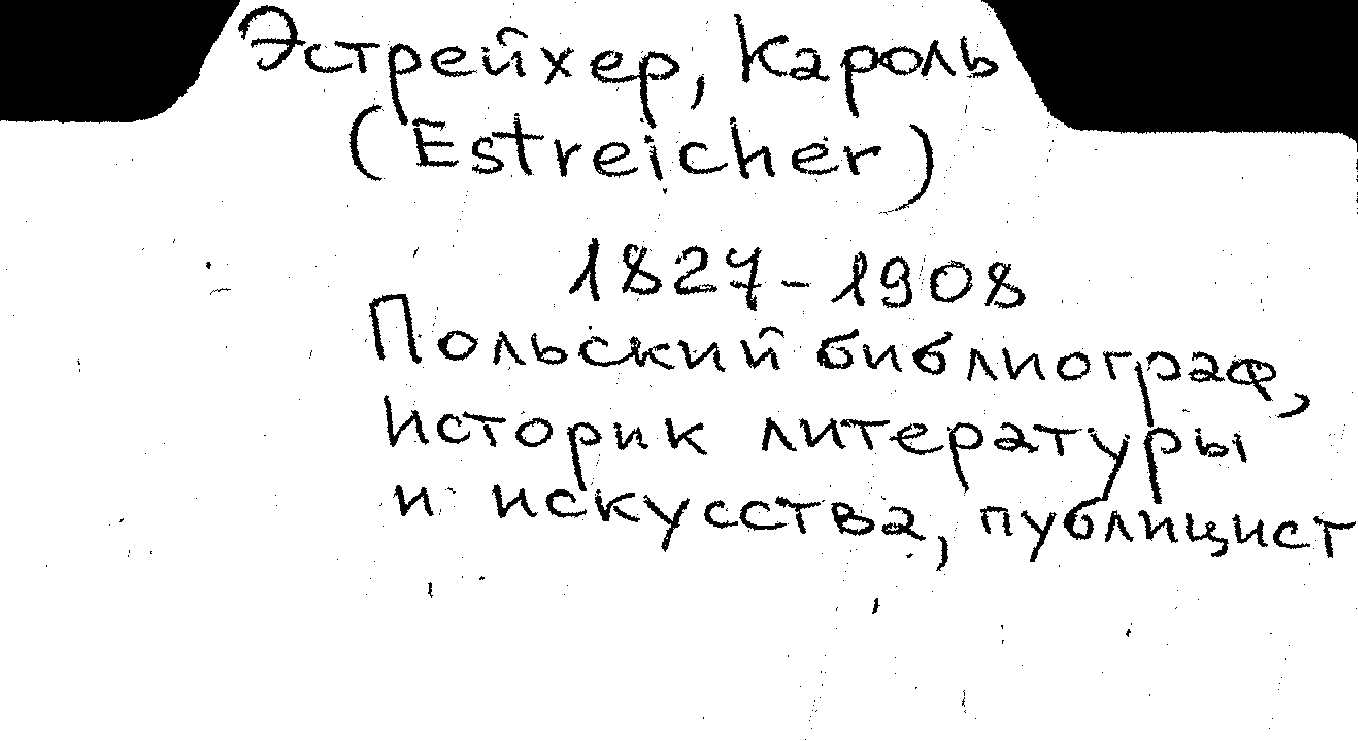 Эстрейхер, Кароль
(Estreicher)
1827-1908
Польский библиограф,
историк литературы
и искусства, публицист